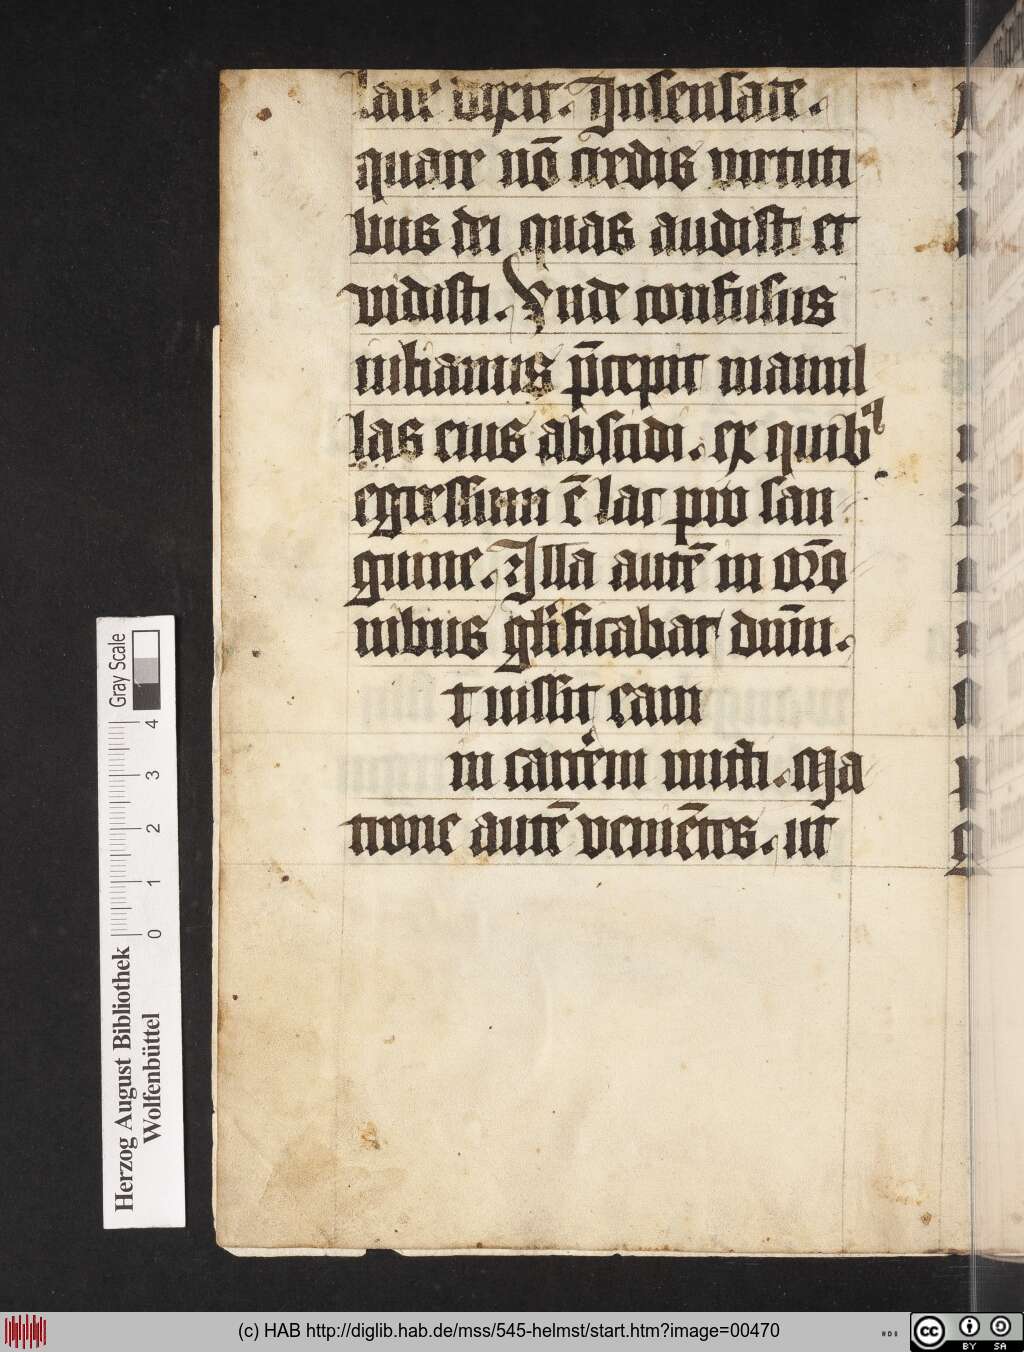 dixit. Insensate.
quare nō credis virtuti
bus dei quas audisti et
vidisti. Unde confusus
iulianus p̄cepit mamil
las eius abscidi. ex quibꝰ
egressum ē lac pro san
guine. Illa autē in or̄o
nibus gl̄ificabat dn̄m.
t iussit eam
in carcerem mitti. Ma
trone autē veniētes. ut
Gray Scale
4
3
2
1
0
Herzog August Bibliothek
Wolfenbüttel
(c) HAB http://diglib.hab.de/mss/545-helmst/start.htm?image=00470
cc BY SA